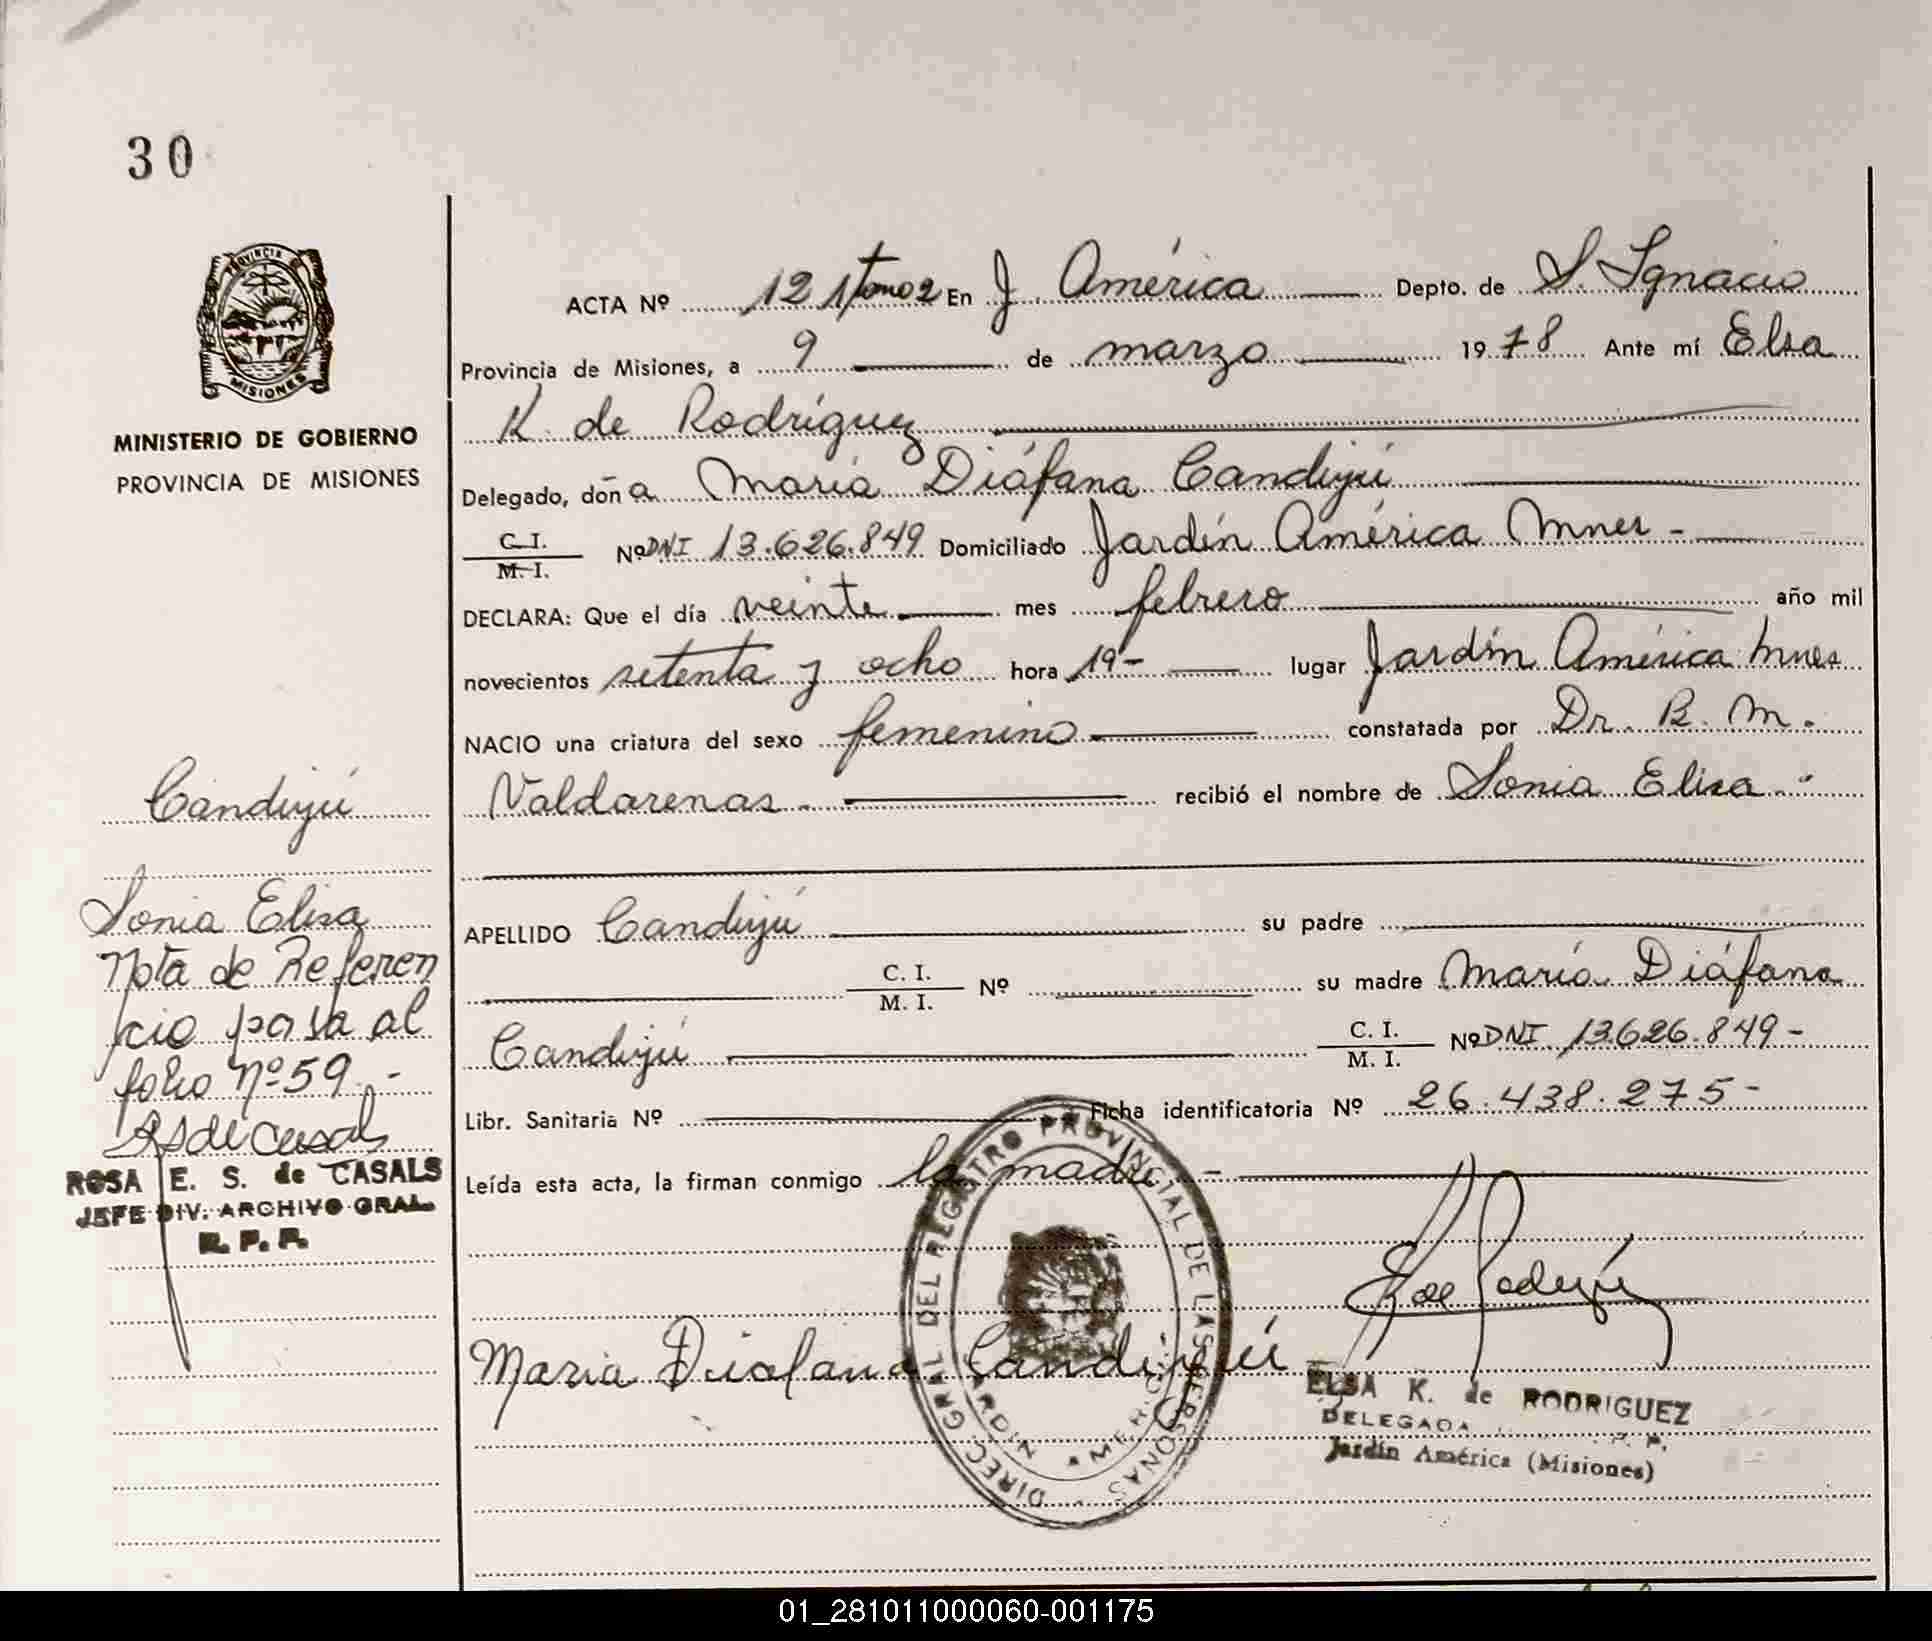 30
PROVINCIA DE
MISIONES
MINISTERIO DE GOBIERNO
PROVINCIA DE MISIONES
ACTA Nº 121 Tomo 2 En J. América Depto. de S. Ignacio
Provincia de Misiones, a 9 de marzo 1978 Ante mí Elsa
K. de Rodríguez
Delegado, doña María Diáfana Candiyú
C. I. / M. I. Nº DNI 13.626.849 Domiciliado Jardín América Mnes -
DECLARA: Que el día veinte mes febrero año mil
novecientos setenta y ocho hora 19- lugar Jardín América Mnes
NACIO una criatura del sexo femenino constatada por Dr. B. M.
Valdarenas.- recibió el nombre de Sonia Elisa.-
APELLIDO Candiyú su padre
C. I. / M. I. Nº su madre María Diáfana
Candiyú C. I. / M. I. Nº DNI 13.626.849-
Libr. Sanitaria Nº Ficha identificatoria Nº 26.438.275-
Leída esta acta, la firman conmigo la madre.-
Maria Diafana Candiyú
DIREC. GRAL. DEL REGISTRO PROVINCIAL DE LAS PERSONAS
JARDIN AMERICA
ELSA K. de RODRIGUEZ
DELEGADA R. P. P.
Jardín América (Misiones)
Candiyú
Sonia Elisa
Nota de Referen
cia pasa al
folio Nº 59.-
ROSA E. S. de CASALS
JEFE DIV. ARCHIVO GRAL.
R. P. P.
01_281011000060-001175